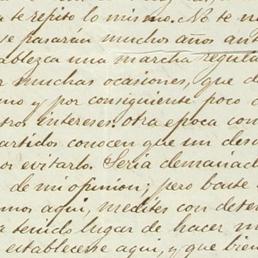 a te repito lo mismo. No te m
se pasarán muchos años ant
ablezca una marcha regula
r muchas ocasiones, que d
mo y por consiguiente poco c
tros intereses. otra epoca con
artidos conocen que un des
or evitarlo. Seria demasiad
de mi opinion; pero baste
mos aqui, medites con deten
a tenido lugar de hacer m
establecerse aqui, y que bien